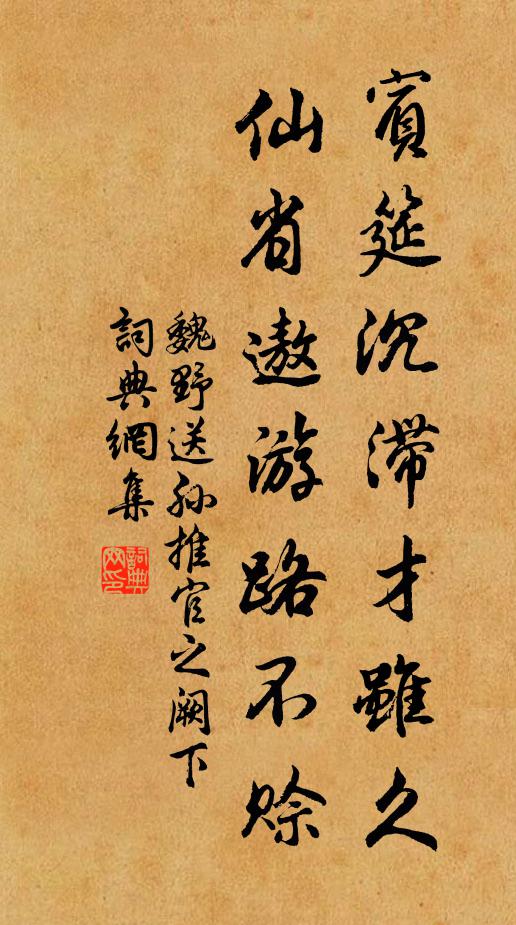 賓筵沉滯才雖久
仙省遨游路不賒
魏野送孙推官之阙下
詞典網集
詞典
网印